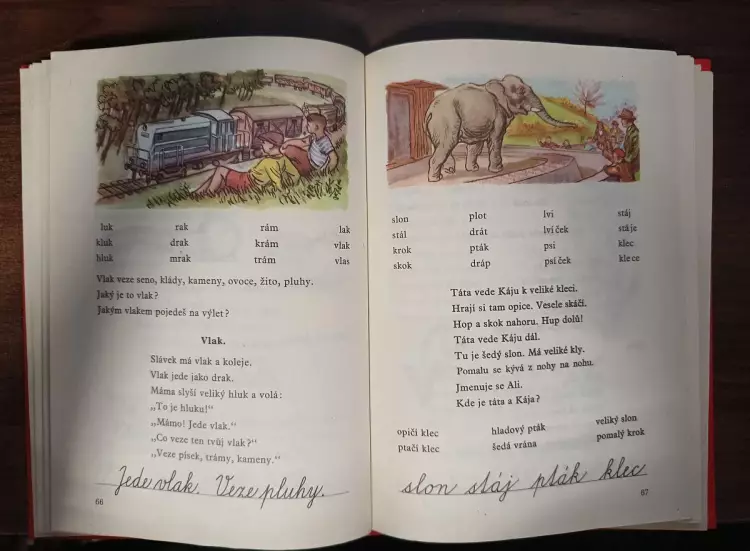 luk rak rám lak
kluk drak krám vlak
hluk mrak trám vlas
Vlak veze seno, klády, kameny, ovoce, žito, pluhy.
Jaký je to vlak?
Jakým vlakem pojedeš na výlet?
Vlak.
Slávek má vlak a koleje.
Vlak jede jako drak.
Máma slyší veliký hluk a volá:
„To je hluku!“
„Mámo! Jede vlak.“
„Co veze ten tvůj vlak?“
„Veze písek, trámy, kameny.“
Jede vlak. Veze pluhy.
66
slon plot lvi stáj
stál drát lvíček stáje
krok pták psi klec
skok dráp psíček klece
Táta vede Káju k veliké kleci.
Hrají si tam opice. Vesele skáčí.
Hop a skok nahoru. Hup dolů!
Táta vede Káju dál.
Tu je šedý slon. Má veliké kly.
Pomalu se kývá z nohy na nohu.
Jmenuje se Ali.
Kde je táta a Kája?
opičí klec hladový pták veliký slon
ptačí klec šedá vrána pomalý krok
slon stáj pták klec
67